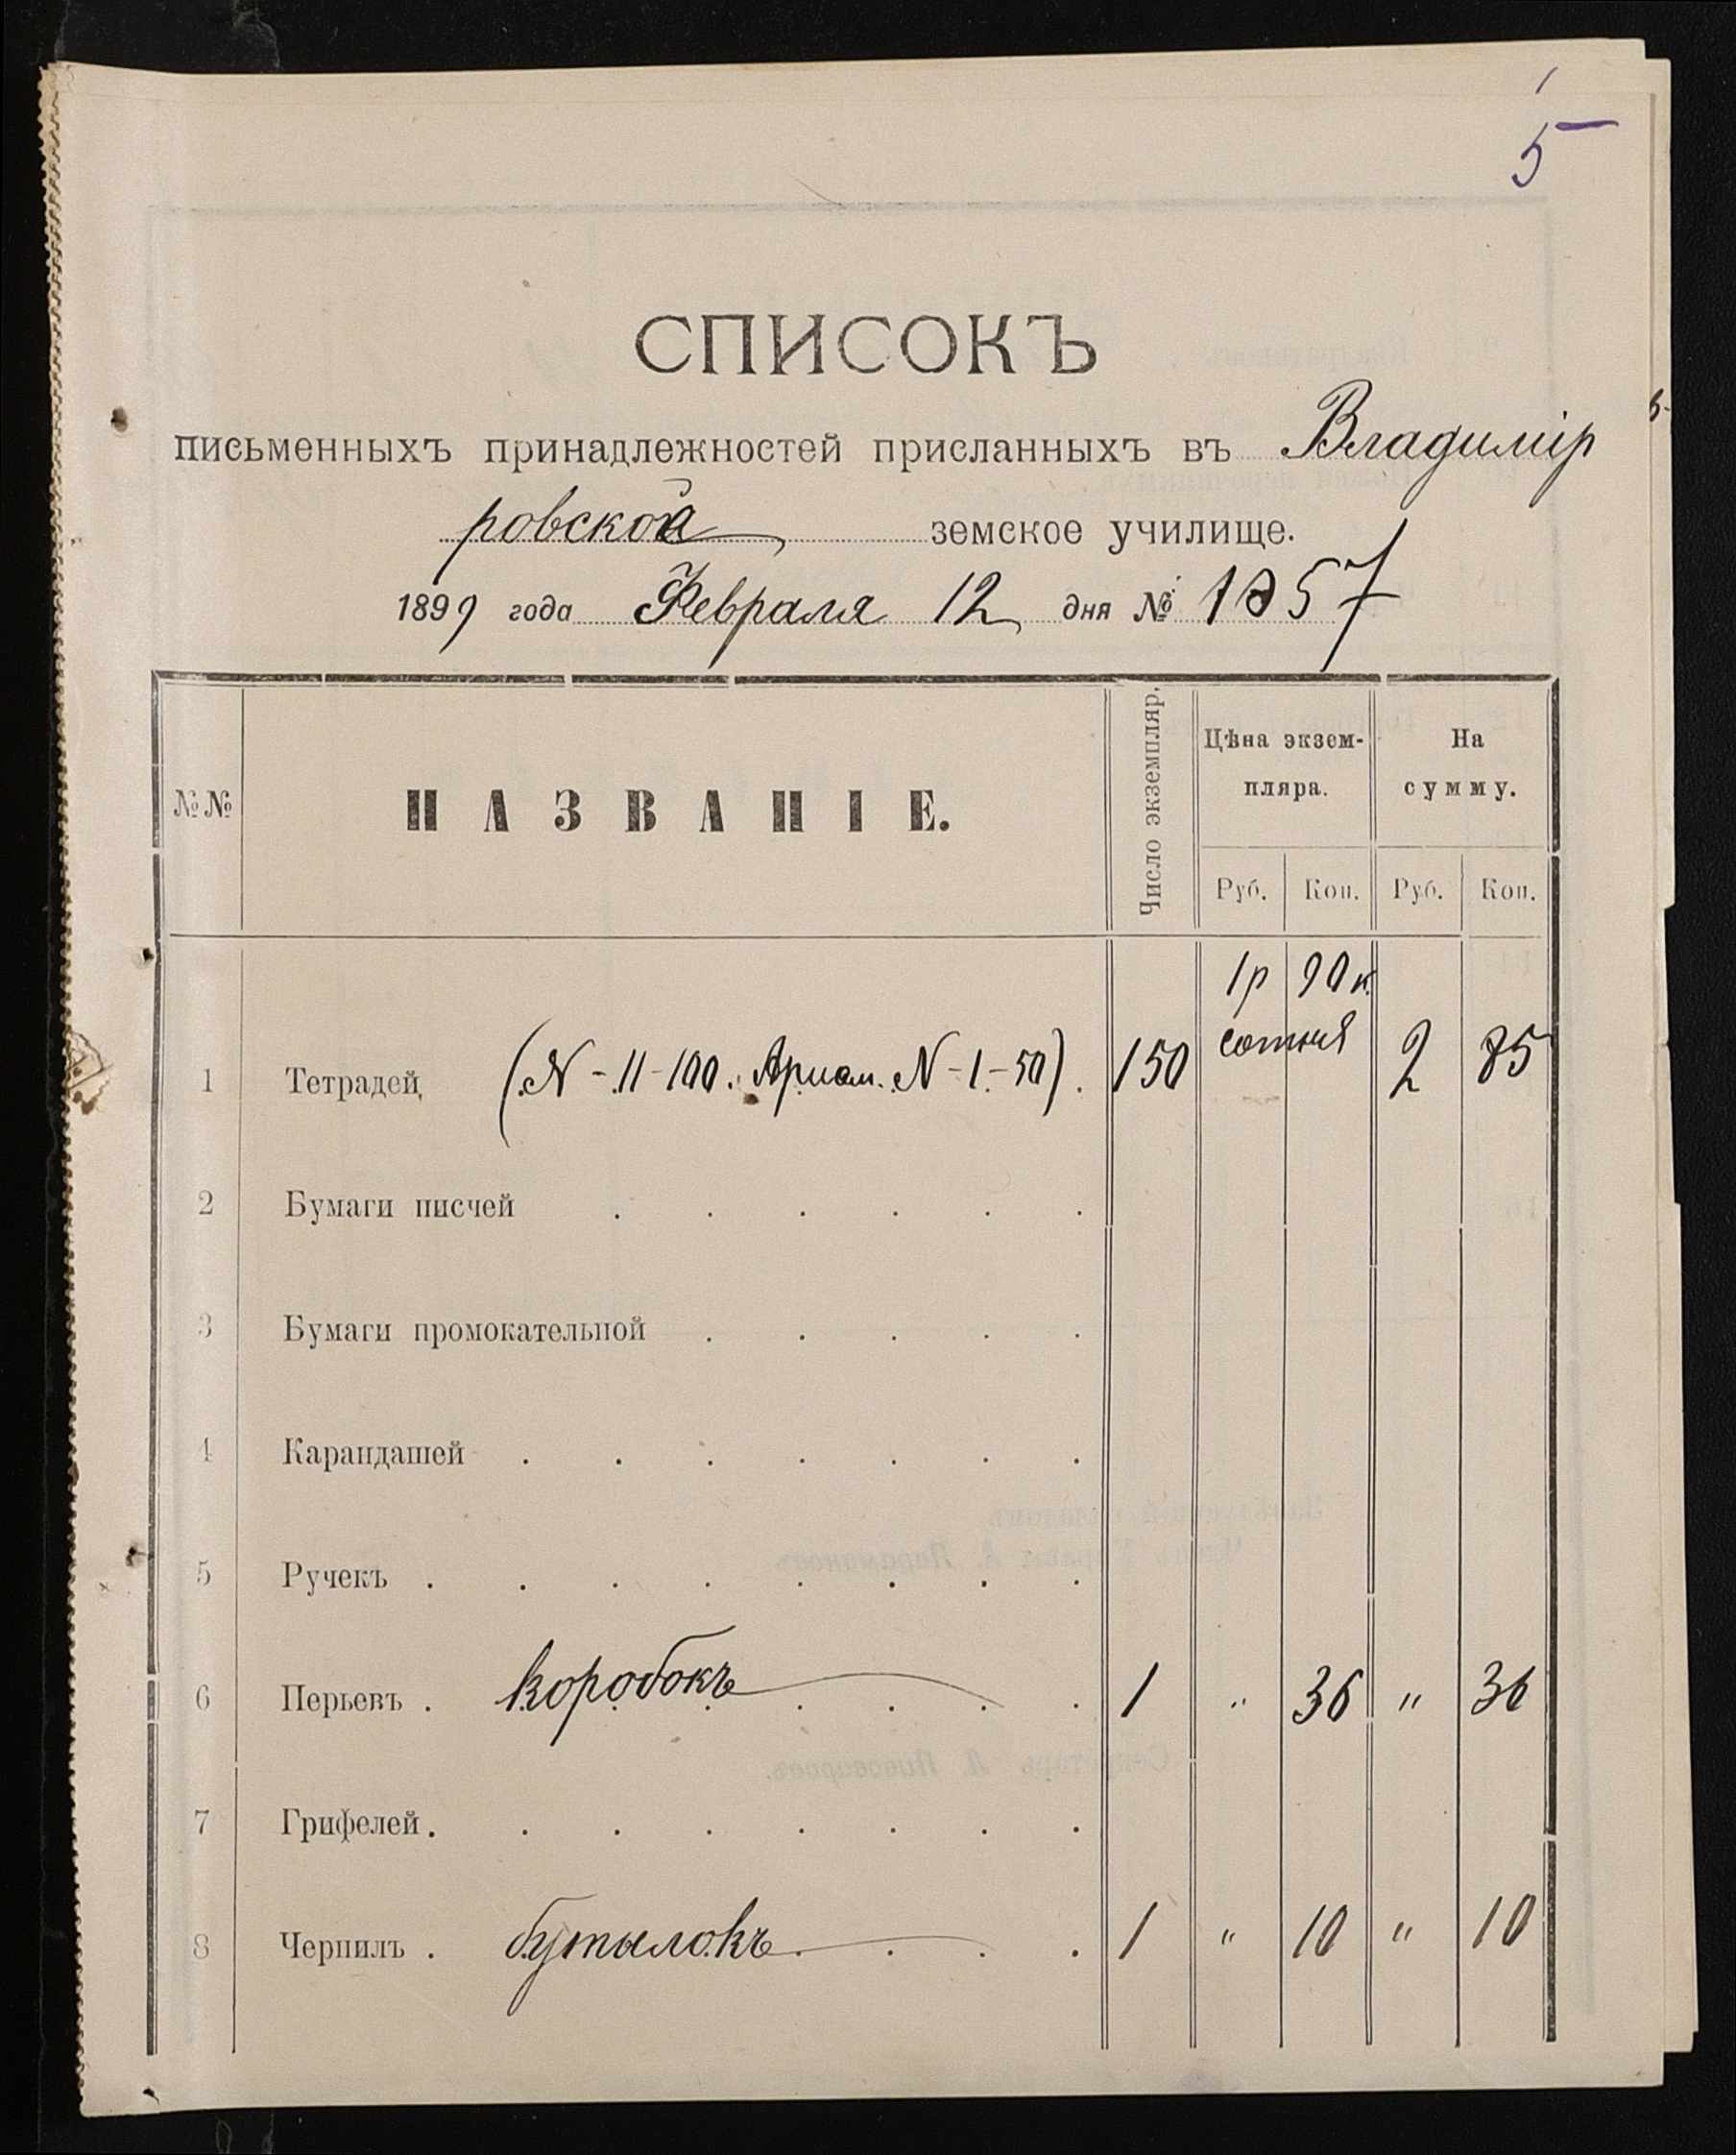 5
СПИСОКЪ
письменныхъ принадлежностей присланныхъ въ Владимір
ровской земское училище.
1899 года Февраля 12 дня № 1857
№№ НАЗВАНІЕ. Число экземпляр. Цѣна экзем- На
пляра. сумму.
Руб. Коп. Руб. Коп.
1р 90к.
1 Тетрадей (N - 11 - 100. Ариѳм. N - 1 - 50). 150 сотня 2 85
2 Бумаги писчей
3 Бумаги промокательной
4 Карандашей
5 Ручекъ
6 Перьевъ . коробокъ 1 " 36 " 36
7 Грифелей.
8 Чернилъ . бутылокъ 1 " 10 " 10